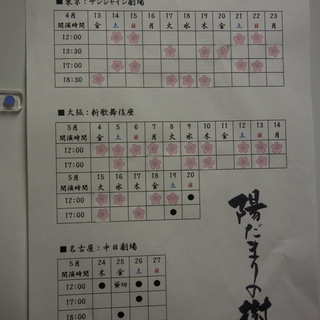 ■東京：サンシャイン劇場
4月 13 14 15 16 17 18 19 20 21 22 23
開演時間 金 土 日 月 火 水 木 金 土 日 月
12:00
12:30
17:00
18:30
■大阪：新歌舞伎座
5月 4 5 6 7 8 9 10 11 12 13 14
開演時間 金 土 日 月 火 水 木 金 土 日 月
12:00
17:00
5月 15 16 17 18 19 20
開演時間 火 水 木 金 土 日
12:00 ●
17:00 ●
■名古屋：中日劇場
5月 24 25 26 27
開演時間 木 金 土 日
12:00 ● 貸切 ● ●
17:00 ●
18:00 ●
陽だまりの樹